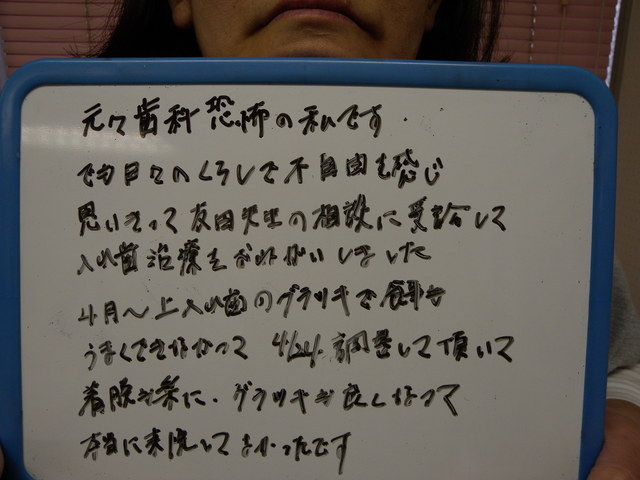 元々歯科恐怖の私です.
でも日々のくらしで不自由を感じ
思いきって友田先生の相談に受診して
入れ歯治療をおねがいしました
4月〜上入れ歯のグラツキで食事も
うまくできなかって 4/24. 調整して頂いて
着脱が楽に、グラツキが良くなって
本当に来院してよかったです